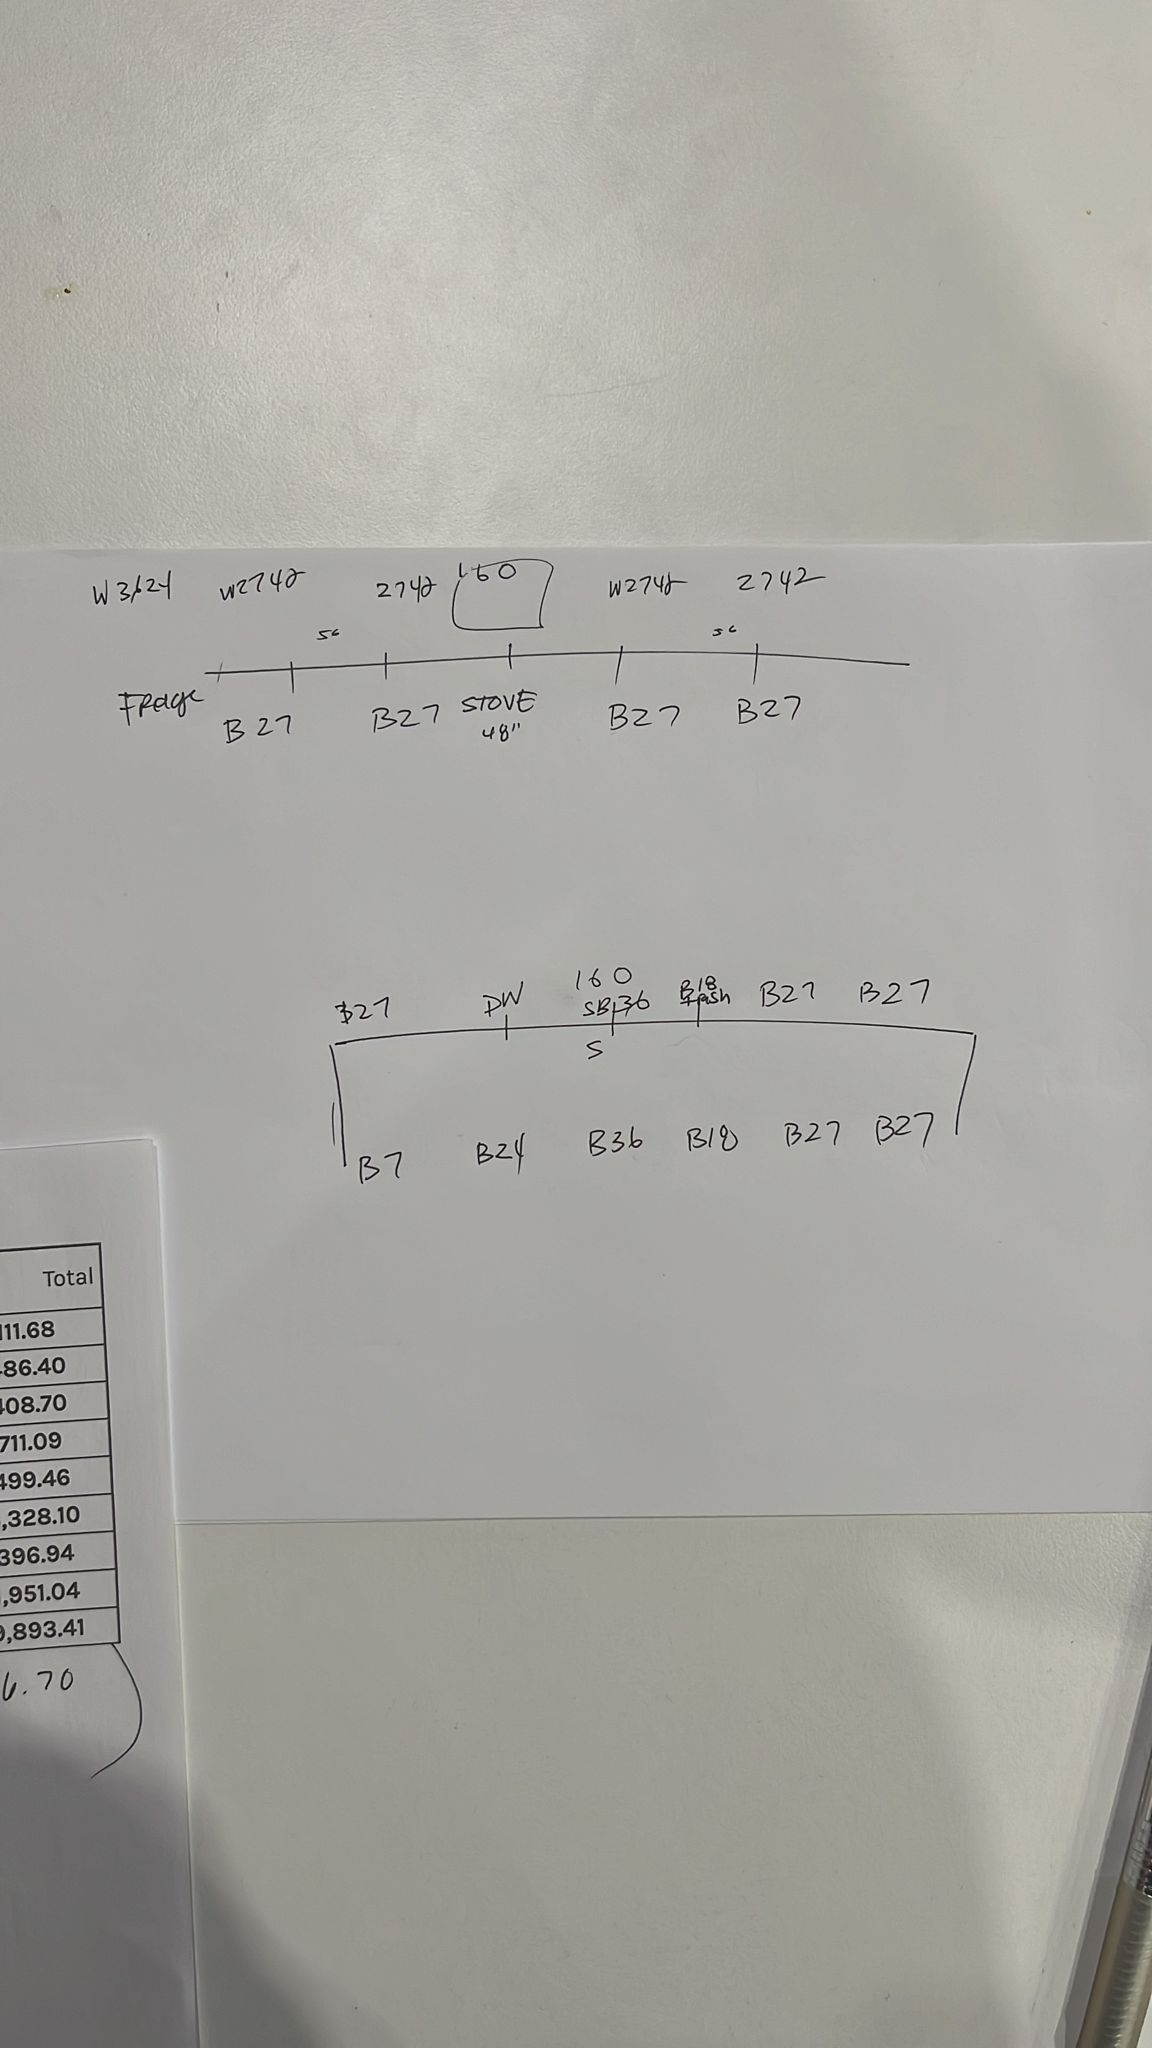 W3624 W2742 2742 160 W2742 2742
56 56
Fridge B27 B27 STOVE B27 B27
48"
160
B27 DW SB36 B18 B27 B27
trash
S
B7 B24 B36 B18 B27 B27
Total
111.68
86.40
408.70
711.09
499.46
,328.10
396.94
,951.04
9,893.41
6.70